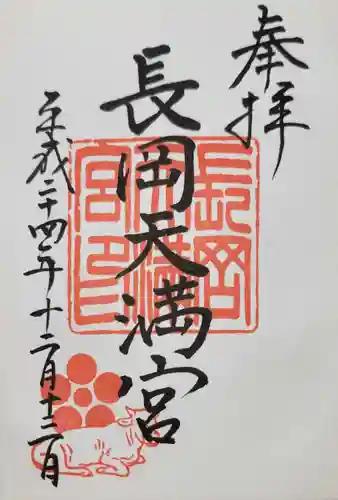 奉拝
長岡天満宮
長岡天満宮印
平成二十四年十二月十二日